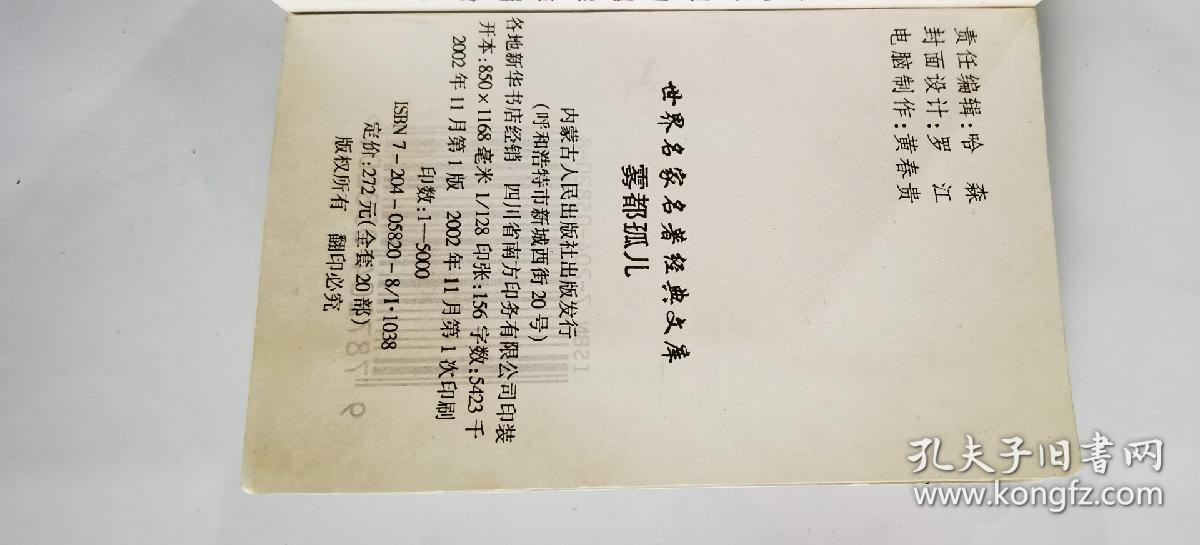 责任编辑:哈 森
封面设计:罗 江
电脑制作:黄春贵
世界名家名著经典文库
雾都孤儿
内蒙古人民出版社出版发行
(呼和浩特市新城西街20号)
各地新华书店经销 四川省南方印务有限公司印装
开本:850×1168毫米1/128 印张:156 字数:5423千
2002年11月第1版 2002年11月第1次印刷
印数:1—5000
ISBN 7-204-05820-8/I·1038
定价:272元(全套20部)
版权所有 翻印必究
孔夫子旧书网
www.kongfz.com